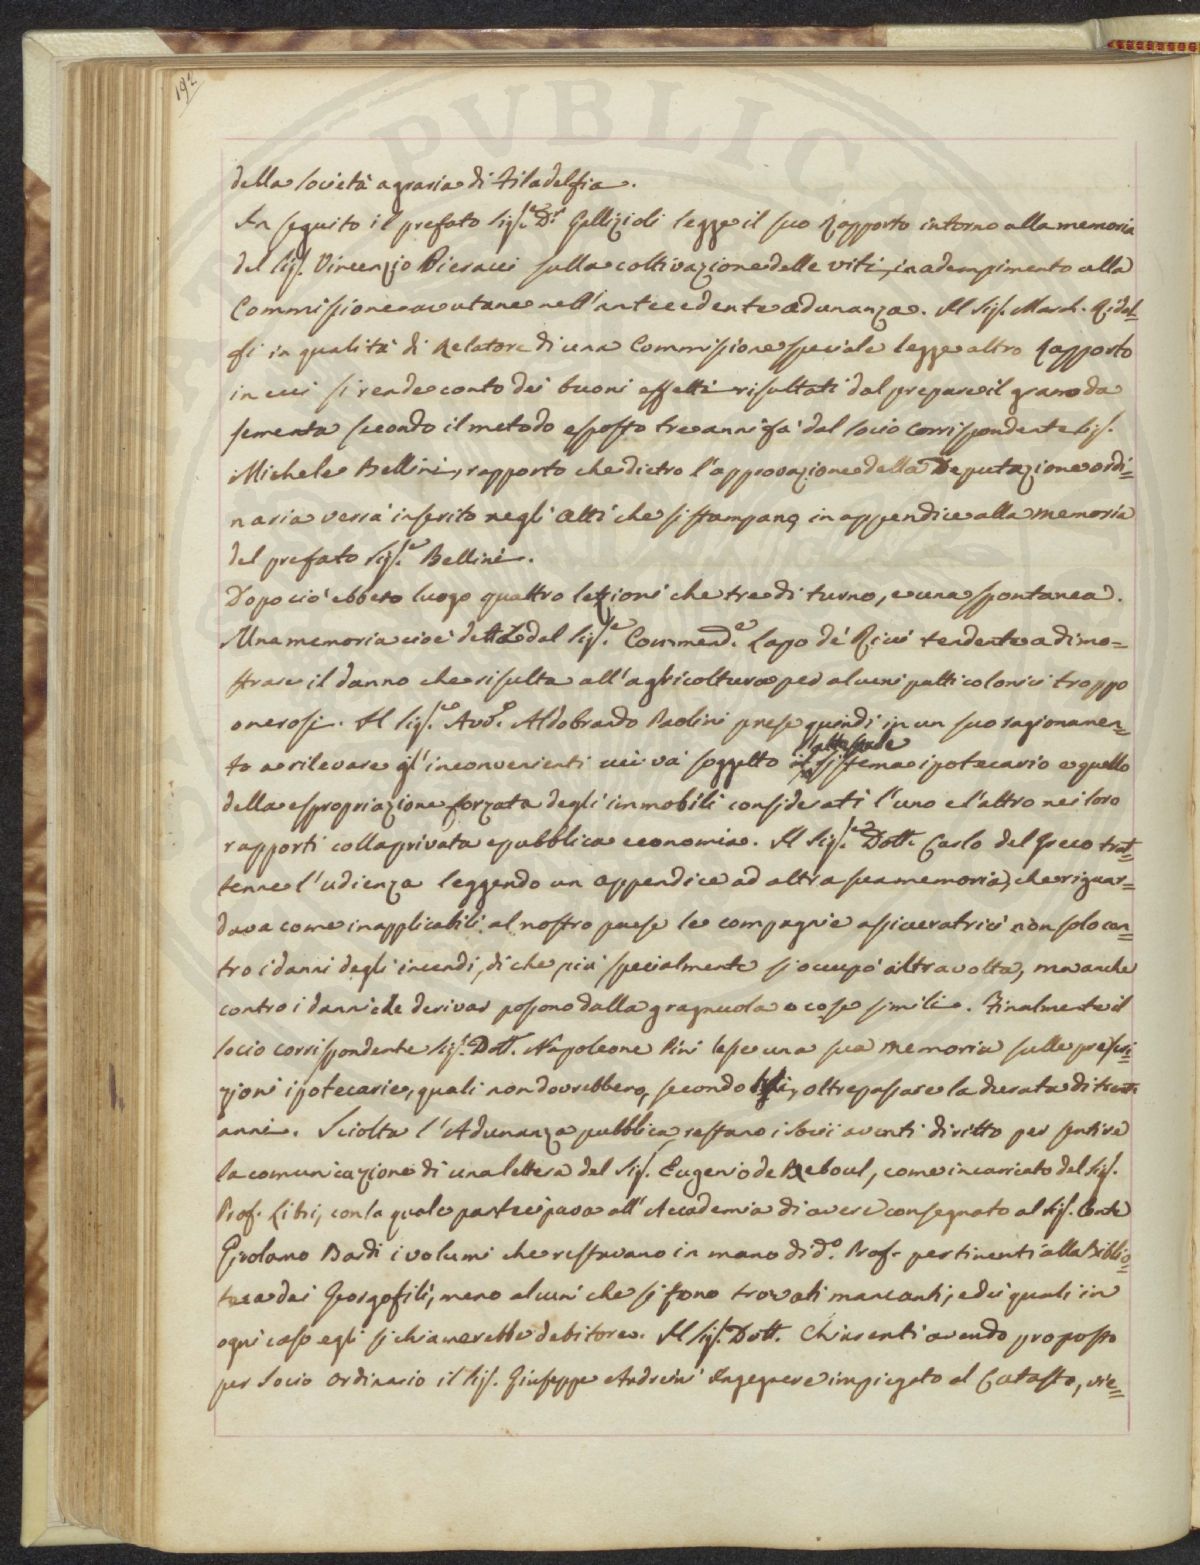 192
PVBLIC
della società agraria di Filadelfia.
In seguito il prefato Sig.e D.r Gallizioli legge il suo Rapporto intorno alla memoria
del Sig. Vincenzio Pieracci sulla coltivazione delle viti, in adempimento alla
Commissione avutane nell'antecedente adunanza. Il Sig. March. Ridol=
fi in qualità di Relatore di una Commissione speciale legge altro Rapporto
in cui si rende conto dei buoni effetti risultati dal prepare il grano da
sementa secondo il metodo esposto tre anni fà dal socio corrispondente Sig.
Michele Bellini, rapporto che dietro l'approvazione della Deputazione ordi=
naria verrà inserito negli Atti che si stampano, in appendice alla memoria
del prefato Sig.e Bellini.
Dopo ciò ebbero luogo quattro lezioni che tre di turno, e una spontanea.
Una memoria cioè del Sig.e Commend.e Lapo de' Ricci tendente a dimo=
strare il danno che risulta all'agricoltura ped alcuni patti colonici troppo
onerosi. Il Sig.e Avv.o Aldobrando Paolini prese quindi in un suo ragionamen=
to a rilevare gl'inconvenienti cui và soggetto l'attuale sistema ipotecario e quello
della espropriazione forzata degli immobili considerati l'uno e l'altro nei loro
rapporti colla privata e pubblica economia. Il Sig.e Dott. Carlo del Greco trat=
tenne l'udienza leggendo un appendice ad altra sua memoria, che riguar=
dava come inapplicabili al nostro paese le compagnie assicuratrici non solo con=
tro i danni degli incendi, di che più specialmente si occupò altra volta, ma anche
contro i danni che derivar possono dalla gragnuola o cose simili. Finalmente il
socio corrispondente Sig. Dott. Napoleone Pini lesse una sua memoria sulle prescri=
zioni ipotecarie, quali non dovrebbero, secondo lui, oltrepassare la durata di trent'
anni. Sciolta l'Adunanza pubblica restano i socii aventi diritto per sentire
la comunicazione di una lettera del Sig. Eugenio de Reboul, come incaricato del Sig.
Prof. Libri, con la quale partecipava all'Accademia di avere consegnato al Sig. Conte
Girolamo Bardi i volumi che restavano in mano di d.o Prof. pertinenti alla Biblio=
teca dei Georgofili, meno alcuni che si sono trovati mancanti, e dei quali in
ogni caso egli si chiamerebbe debitore. Il Sig. Dott. Chiarenti avendo proposto
per Socio Ordinario il Sig. Giuseppe Andreini Ingegnere impiegato al Catasto, vie=